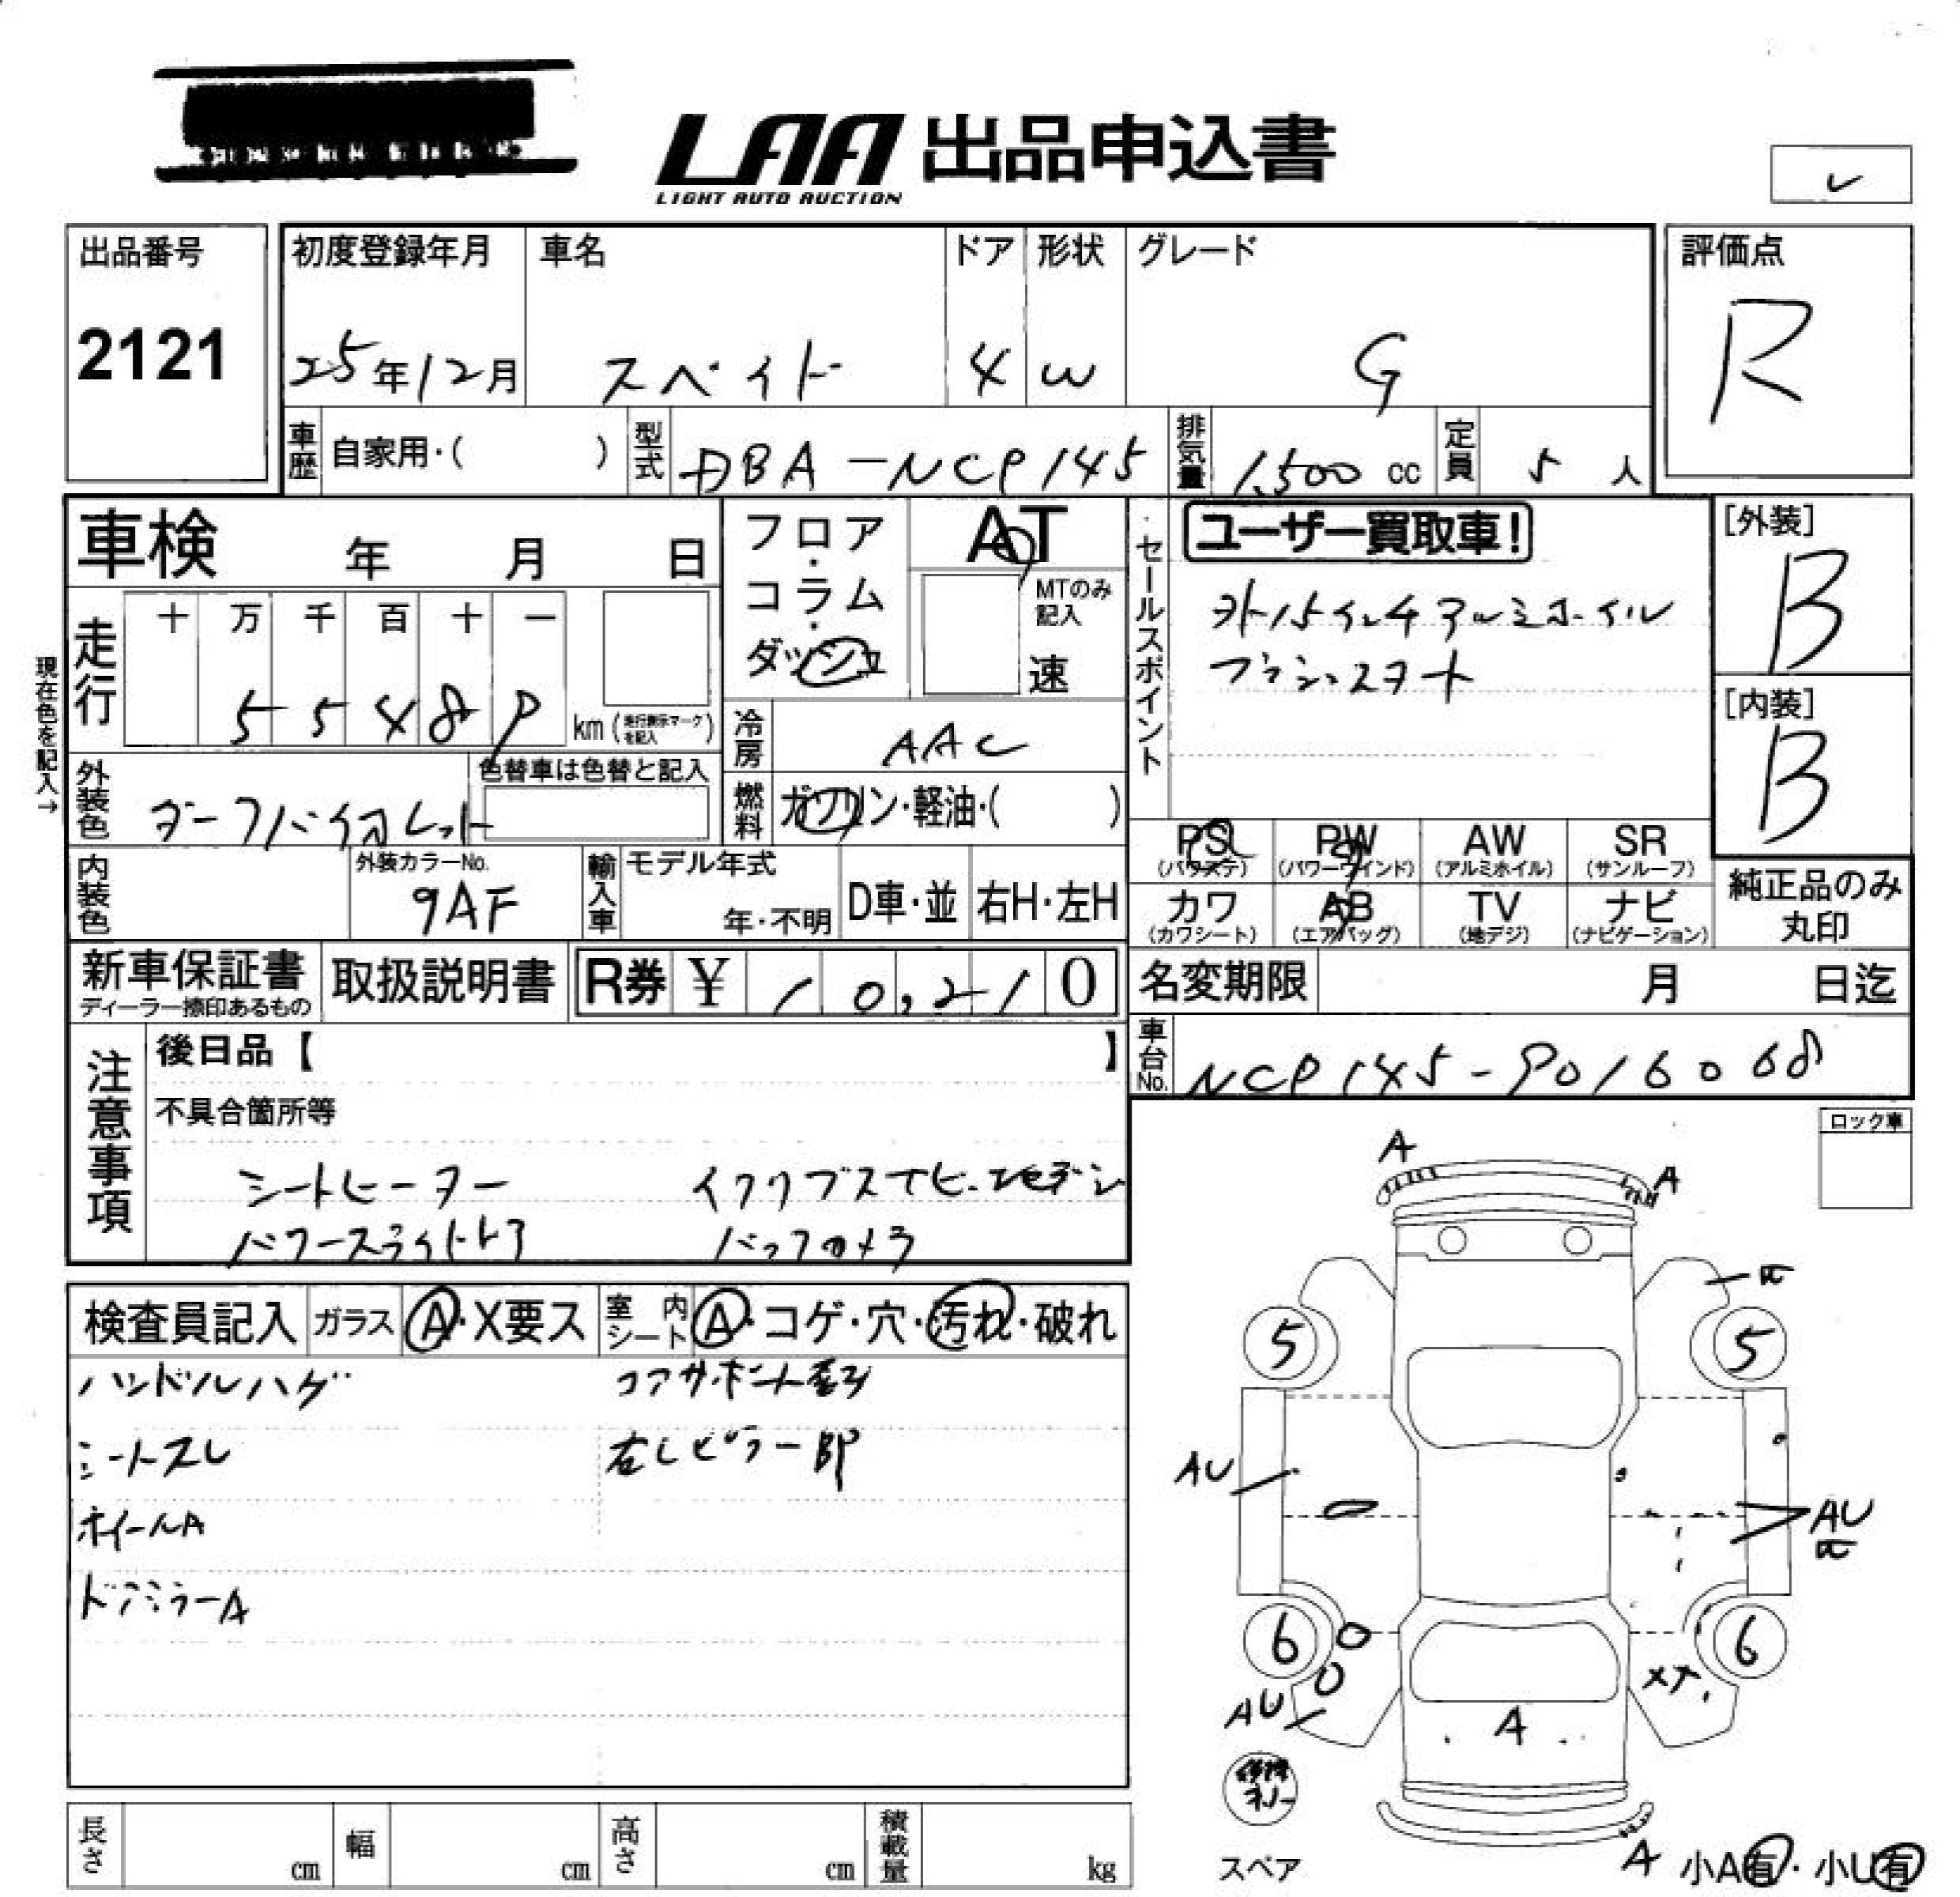 LAA 出品申込書
LIGHT AUTO AUCTION
レ
出品番号 初度登録年月 車名 ドア 形状 グレード 評価点
2121 25年12月 スペイド 4 W G R
車歴 自家用・( ) 型式 DBA-NCP145 排気量 1,500 cc 定員 5 人
車検 年 月 日 フロア・コラム・ダッシュ AT
MTのみ記入 速
セールスポイント ユーザー買取車!
外15インチアルミホイル
プッシュスタート
[外装] B
[内装] B
現在色を記入→
走行 十 万 千 百 十 一
5 5 4 8 9 km (走行表示マークを記入)
冷房 AAC
外装色 ダークバイオレット 色替車は色替と記入
燃料 ガソリン・軽油・( )
PS (パワステ) PW (パワーウインド) AW (アルミホイル) SR (サンルーフ)
内装色 外装カラーNo. 9AF 輸入車 モデル年式 年・不明 D車・並 右H・左H
カワ (カワシート) AB (エアバッグ) TV (地デジ) ナビ (ナビゲーション)
純正品のみ丸印
新車保証書 ディーラー捺印あるもの 取扱説明書 R券 ¥ 10,210
名変期限 月 日迄
車台No. NCP145-9016068
注意事項 後日品【 】
不具合箇所等
シートヒーター イクリプスナビ
パワースライドドア バックカメラ
ロック車
検査員記入 ガラス A・X要ス 室内シート A・コゲ・穴・汚れ・破れ
ハンドルハゲ コアサポート歪
シートスレ 右Lピラー部
ホイールA
ドアミラーA
A A
5 5
AU AU
6 6
AU XT
A
スペア A 小A有・小U有
長さ cm 幅 cm 高さ cm 積載量 kg